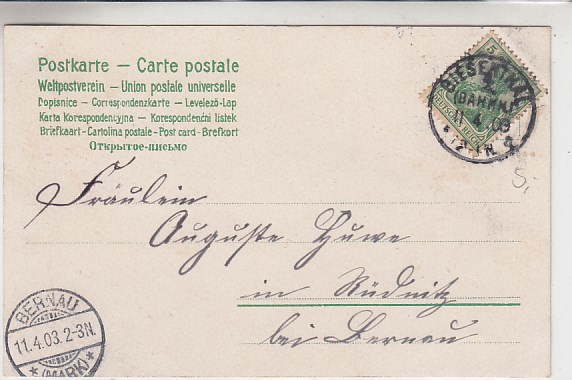 Postkarte — Carte postale
Weltpostverein – Union postale universelle
Dopisnice – Correspondenzkarte – Levelező-Lap
Karta Korespondencyjna – Korespondenční listek
Briefkaart - Cartolina postale - Post card - Brefkort
Открытое-письмо
5
BIESENTHAL
(BAHNH.)
11 4 03
12-1N.
DEUTSCHES REICH
Fräulein
Auguste Huwe
in Rüdnitz
bei Bernau
BERNAU
11.4.03.2-3N.
* (MARK) *